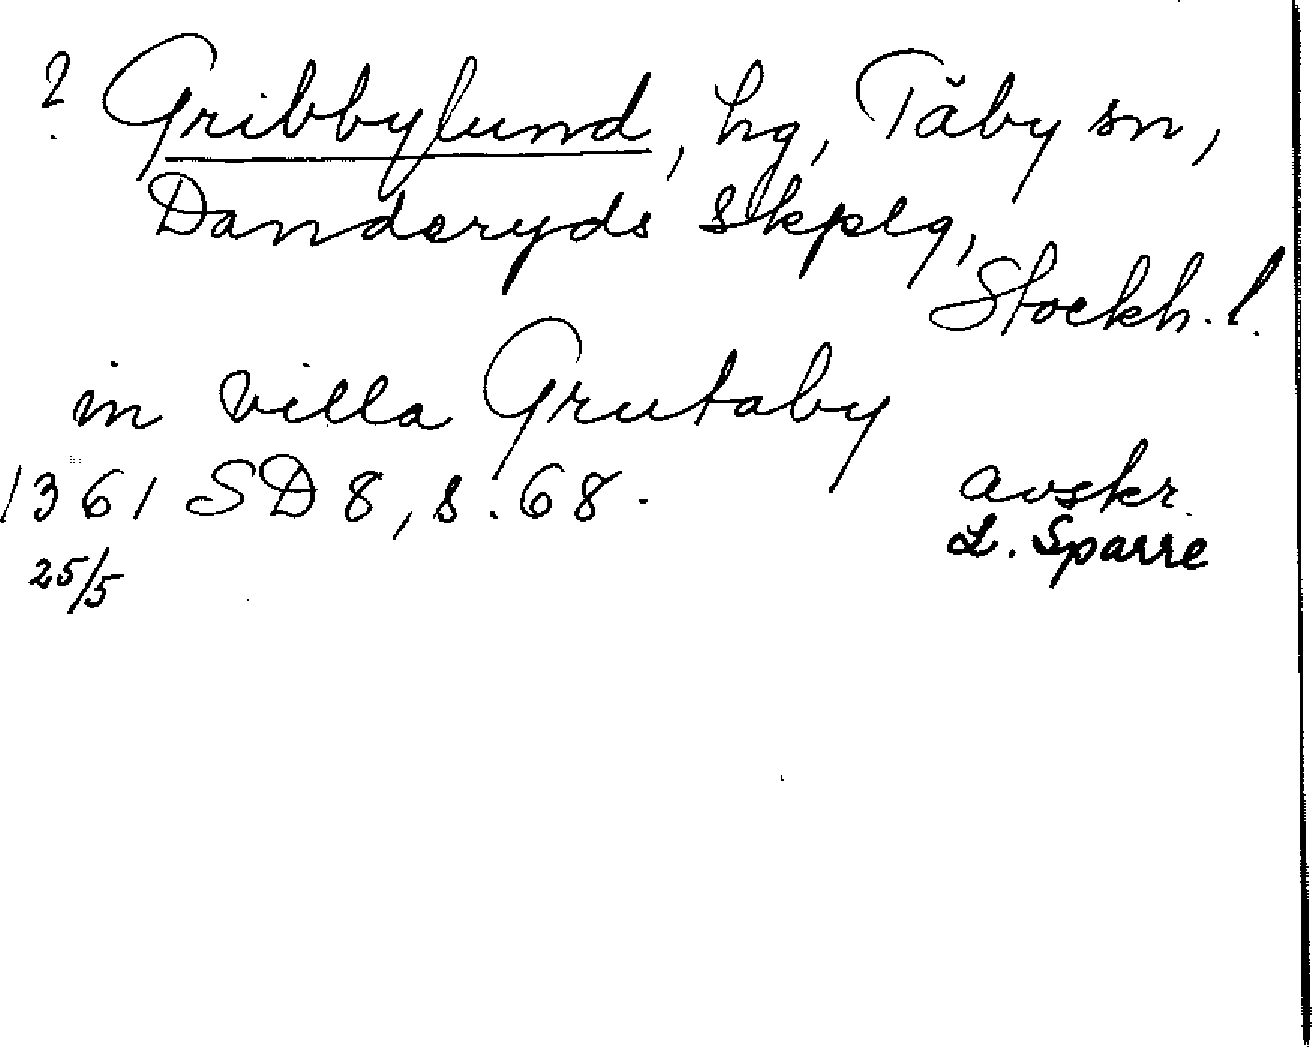 ? Gribbylund, hg, Täby sn,
Danderyds skplg,
Stockh. l.
in villa Grutaby
1361 SD 8, s. 68.
avskr.
L. Sparre
25/5